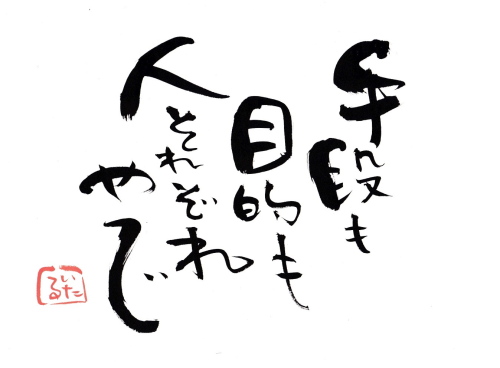 手段も
目的も
人それぞれ
やで
いたる